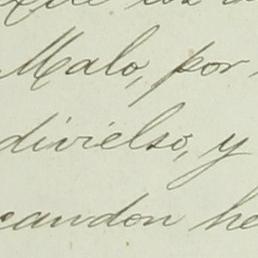 Malo, por
divielso, y
candon he